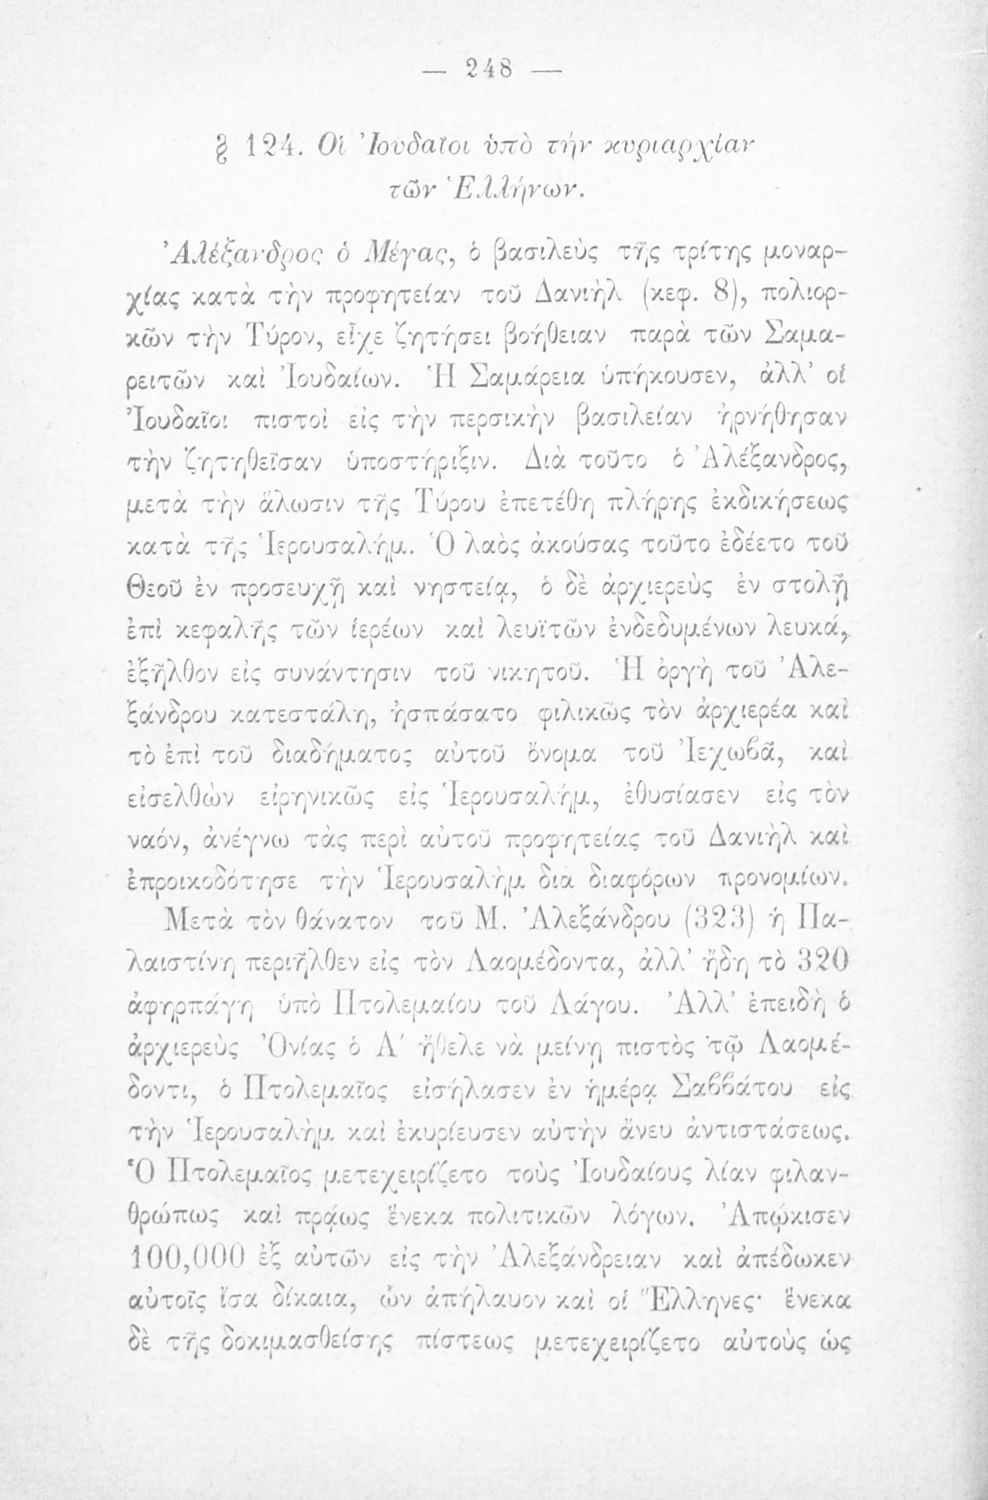 — 248 —
§ 124. Οἱ Ἰουδαῖοι ὑπὸ τὴν κυριαρχίαν
τῶν Ἑλλήνων.
Ἀλέξανδρος ὁ Μέγας, ὁ βασιλεὺς τῆς τρίτης μοναρ-
χίας κατὰ τὴν προφητείαν τοῦ Δανιὴλ (κεφ. 8), πολιορ-
κῶν τὴν Τύρον, εἶχε ζητήσει βοήθειαν παρὰ τῶν Σαμα-
ρειτῶν καὶ Ἰουδαίων. Ἡ Σαμάρεια ὑπήκουσεν, ἀλλ’ οἱ
Ἰουδαῖοι πιστοὶ εἰς τὴν περσικὴν βασιλείαν ἠρνήθησαν
τὴν ζητηθεῖσαν ὑποστήριξιν. Διὰ τοῦτο ὁ Ἀλέξανδρος,
μετὰ τὴν ἅλωσιν τῆς Τύρου ἐπετέθη πλήρης ἐκδικήσεως
κατὰ τῆς Ἱερουσαλήμ. Ὁ λαὸς ἀκούσας τοῦτο ἐδέετο τοῦ
Θεοῦ ἐν προσευχῇ καὶ νηστείᾳ, ὁ δὲ ἀρχιερεὺς ἐν στολῇ
ἐπὶ κεφαλῆς τῶν ἱερέων καὶ λευϊτῶν ἐνδεδυμένων λευκά,
ἐξῆλθον εἰς συνάντησιν τοῦ νικητοῦ. Ἡ ὀργὴ τοῦ Ἀλε-
ξάνδρου κατεστάλη, ἠσπάσατο φιλικῶς τὸν ἀρχιερέα καὶ
τὸ ἐπὶ τοῦ διαδήματος αὐτοῦ ὄνομα τοῦ Ἰεχωβᾶ, καὶ
εἰσελθὼν εἰρηνικῶς εἰς Ἱερουσαλήμ, ἐθυσίασεν εἰς τὸν
ναόν, ἀνέγνω τὰς περὶ αὐτοῦ προφητείας τοῦ Δανιὴλ καὶ
ἐπροικοδότησε τὴν Ἱερουσαλὴμ διὰ διαφόρων προνομίων.
Μετὰ τὸν θάνατον τοῦ Μ. Ἀλεξάνδρου (323) ἡ Πα-
λαιστίνη περιῆλθεν εἰς τὸν Λαομέδοντα, ἀλλ’ ἤδη τὸ 320
ἀφηρπάγη ὑπὸ Πτολεμαίου τοῦ Λάγου. Ἀλλ’ ἐπειδὴ ὁ
ἀρχιερεὺς Ὀνίας ὁ Α′ ἤθελε νὰ μείνῃ πιστὸς τῷ Λαομέ-
δοντι, ὁ Πτολεμαῖος εἰσήλασεν ἐν ἡμέρᾳ Σαββάτου εἰς
τὴν Ἱερουσαλὴμ καὶ ἐκυρίευσεν αὐτὴν ἄνευ ἀντιστάσεως.
Ὁ Πτολεμαῖος μετεχειρίζετο τοὺς Ἰουδαίους λίαν φιλαν-
θρώπως καὶ πρᾴως ἕνεκα πολιτικῶν λόγων. Ἀπῴκισεν
100,000 ἐξ αὐτῶν εἰς τὴν Ἀλεξάνδρειαν καὶ ἀπέδωκεν
αὐτοῖς ἴσα δίκαια, ὧν ἀπήλαυον καὶ οἱ Ἕλληνες· ἕνεκα
δὲ τῆς δοκιμασθείσης πίστεως μετεχειρίζετο αὐτοὺς ὡς